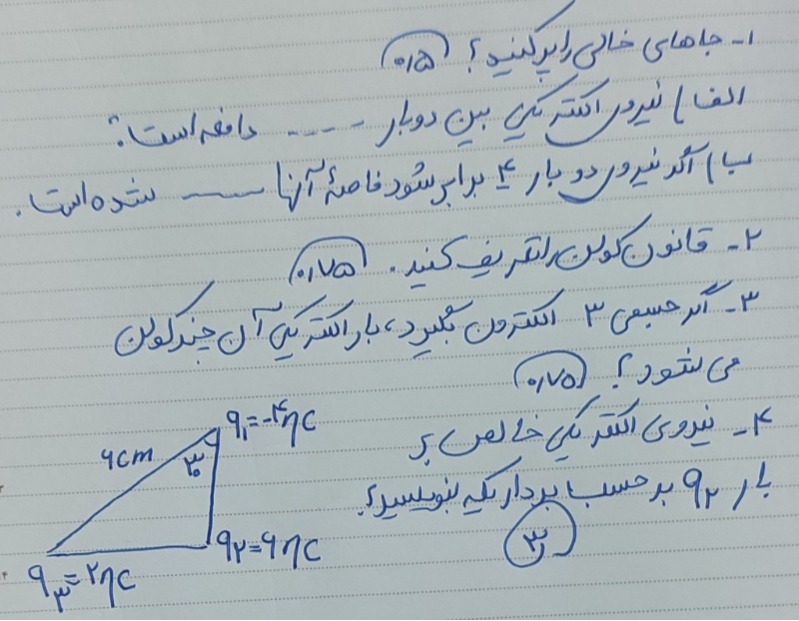 ۱- جاهای خالی را پر کنید؟ ۰/۵
الف) نیروی الکتریکی بین دو بار ---- دافعه است؟
ب) اگر نیروی دو بار ۴ برابر شود فاصلهٔ آنها —— شده است.
۲- قانون کولن را تعریف کنید. ۰/۷۵
۳- اگر جسمی ۳ الکترون بگیرد، بار الکتریکی آن چند کولن
می شود؟ ۰/۷۵
۴- نیروی الکتریکی خالص بر
بار q۲ بر حسب بردار یکه بنویسید؟
۳
q۱=-۴ηC
۶cm
۳۰
q۲=۶ηC
q۳=۲ηC